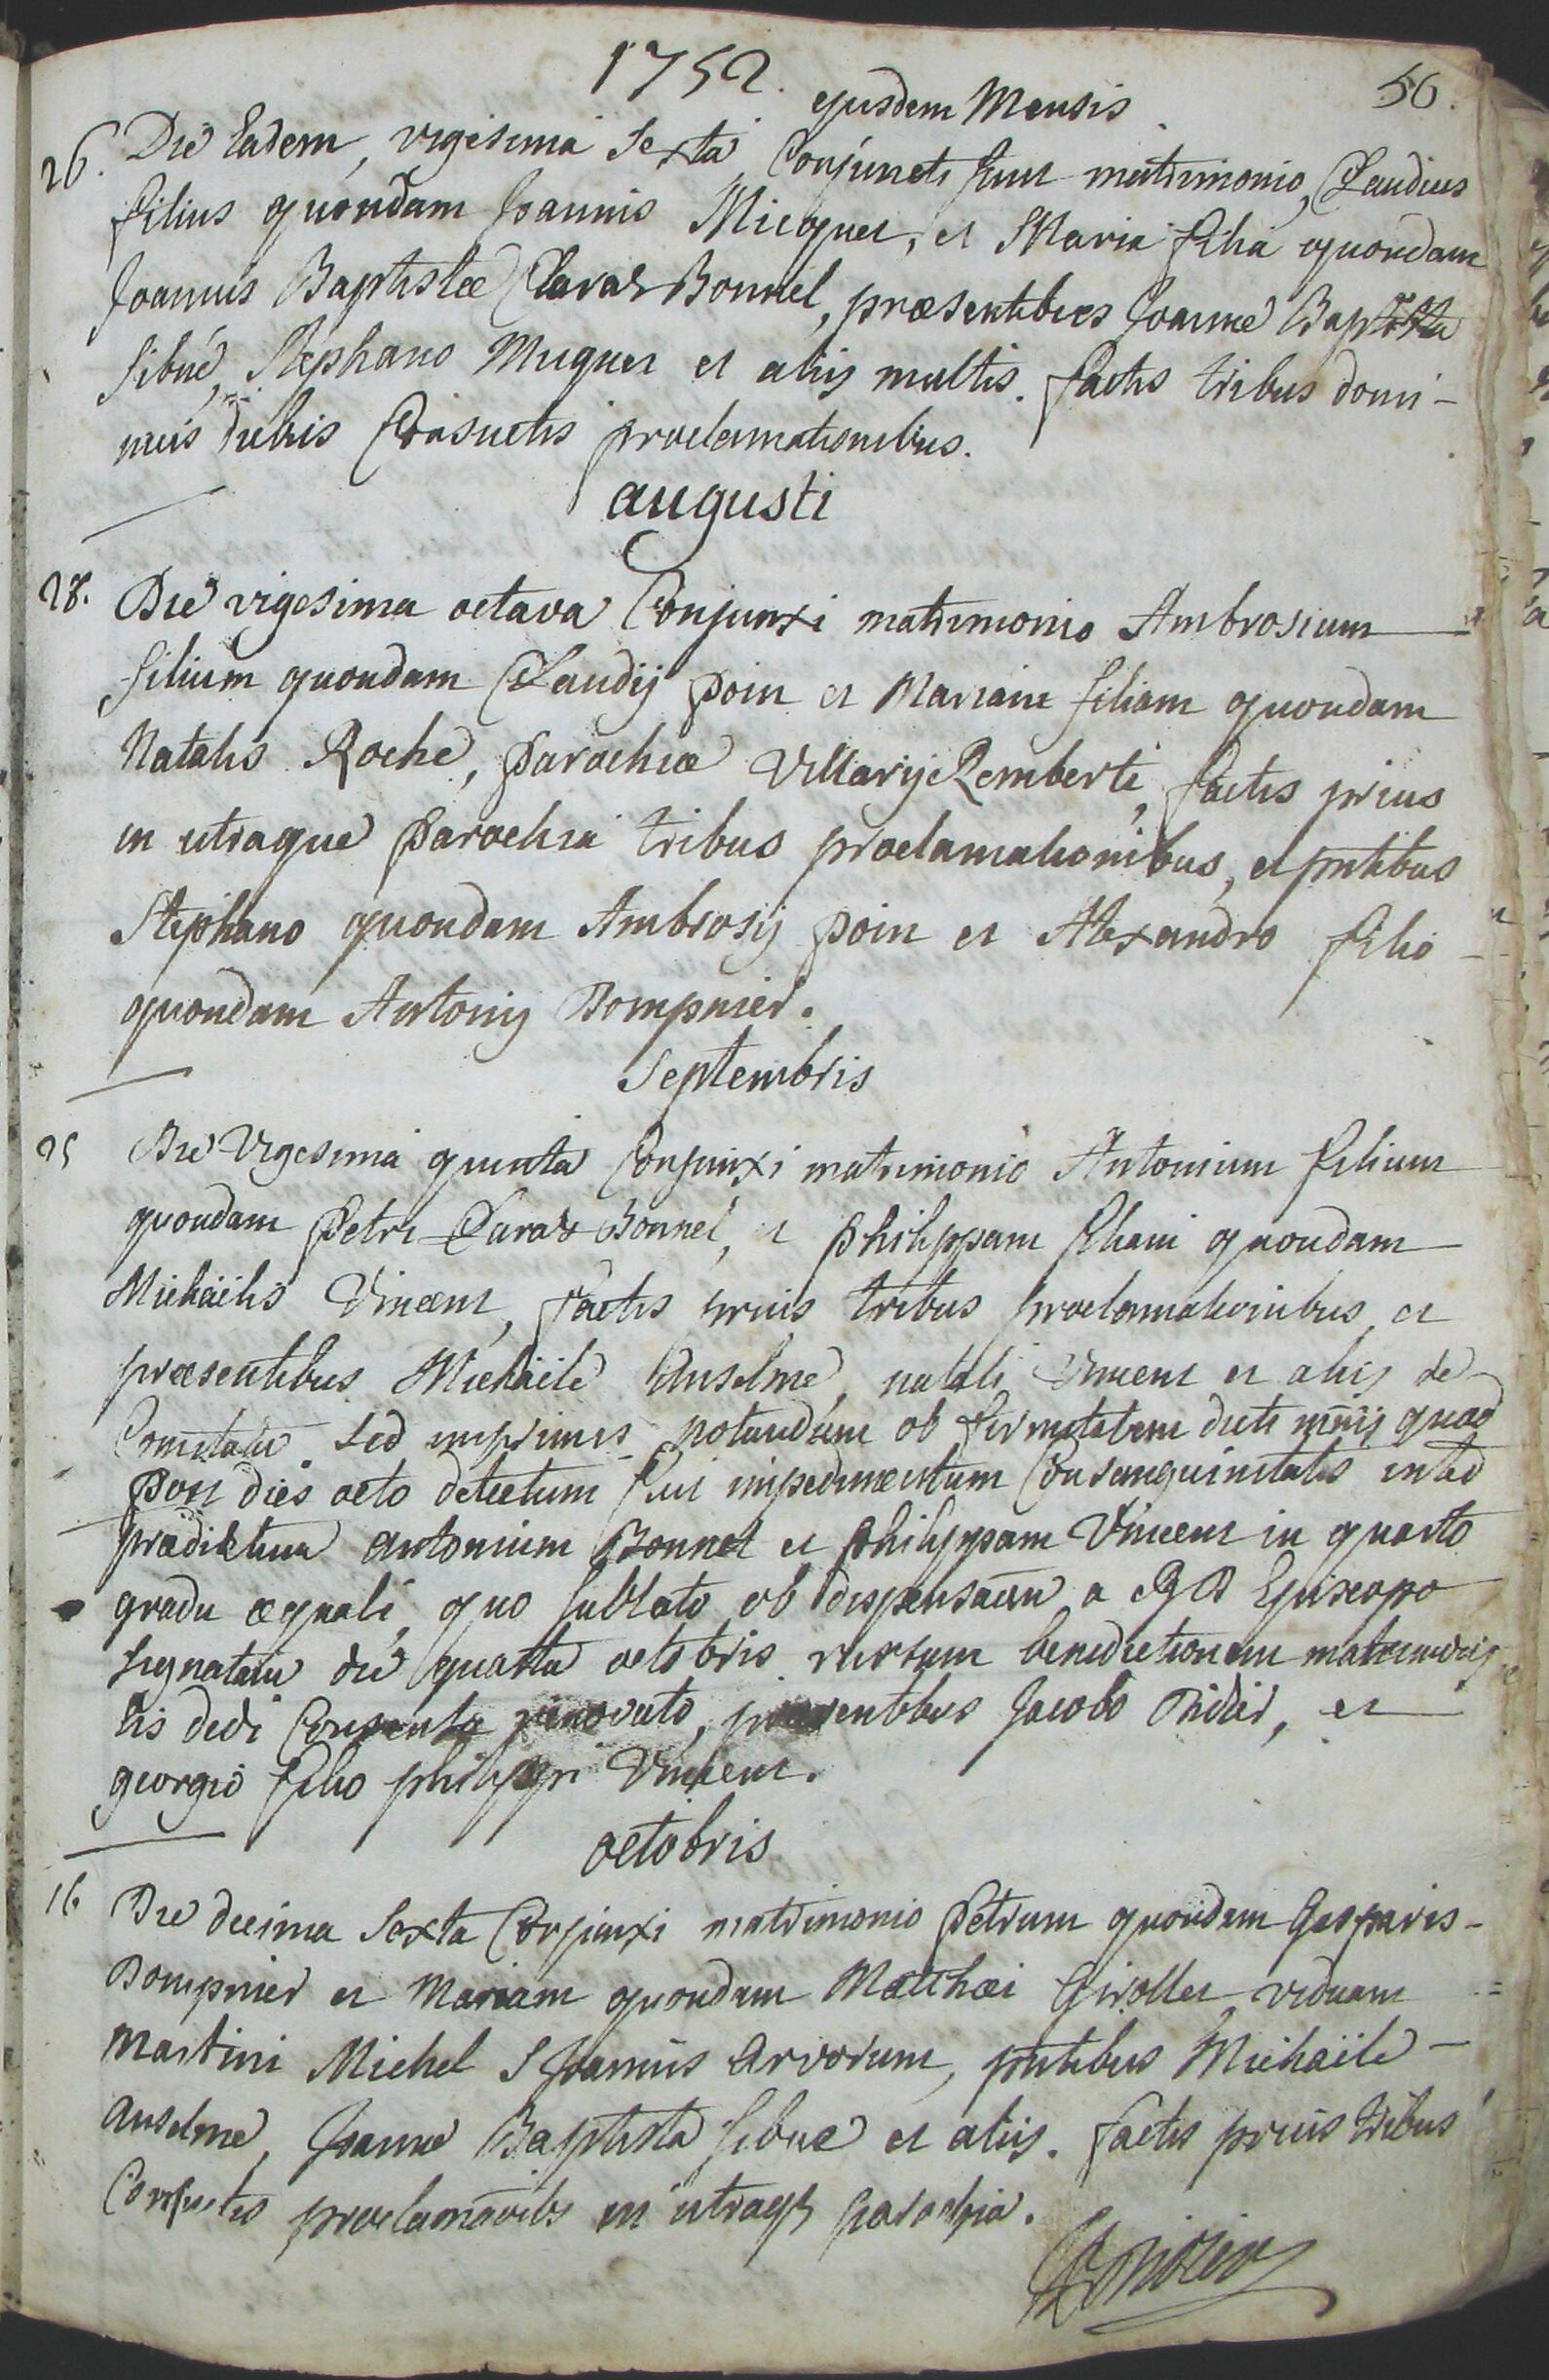 1752.
56.
ejusdem Mensis
26. Die Eadem, vigesima Sexta Conjuncti sunt matrimonio, Claudius
filius quondam Joannis Micquet, et Maria filia quondam
Joannis Baptistæ Claraz Bonnel, præsentibus Joanne Baptista
Sibué, Stephano Muguet et aliis multis. factis tribus domi-
nicis diebus Consuetis proclamationibus.
augusti
28. Die vigesima octava Conjunxi matrimonio Ambrosium
filium quondam Claudij Poin et Mariam filiam quondam
Natalis Roche, Parochiæ Villarij Remberti, factis prius
in utraque Parochia tribus proclamationibus, et pntibus
Stephano quondam Ambrosij Poin et Alexandro filio -
quondam Antonij Bompnier.
Septembris
25 Die Vigesima quinta Conjunxi matrimonio Antonium filium
quondam Petri Claraz Bonnel, et Philippam filiam quondam
Michaëlis Vincent, factis prius tribus proclamationibus, et
præsentibus Michaële Anselme, natali Vincent et aliis de
Comitatu Sed imprimis notandum ob firmitatem dicti mrij quod
Post dies octo detectum fuit impedimentum Consanguinitatis inter
prædictum Antonium Bonnel et Philippam Vincent in quarto
gradu æquali, quo sublato ob dispensaōn a RR Episcopo
signatam die quarta octobris rursum benedictionem
his dedi Consensu renovato, præsentibus Jacobo Didier, et
georgio filio philippi Vincent.
octobris
16 Die decima Sexta Conjunxi matrimonio Petrum quondam Gasparis -
Bompnier et Mariam quondam Matthæi Girollet viduam
Martini Michel S Joannis Arvorum, pntibus Michaële -
Anselme, Joanne Baptista Sibué et aliis. factis prius tribus
Consuetis proclamāōibs in utraqz parochia.